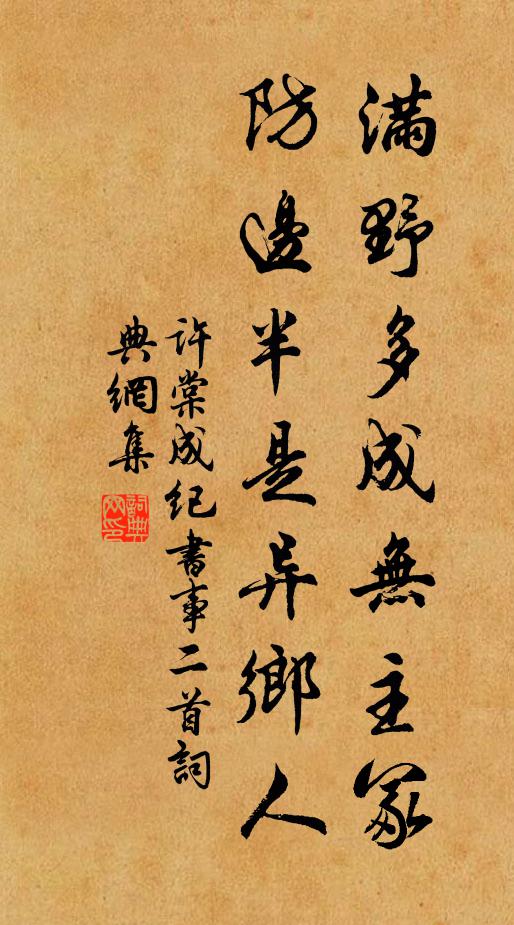 滿野多成無主冢
防邊半是异鄉人
許棠成紀書事二首詞
典網集
詞典網印